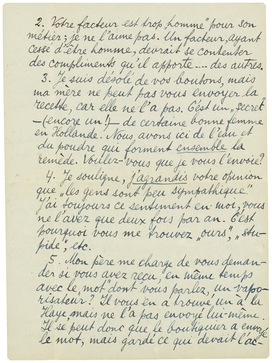 2. Votre facteur est trop „homme" pour son
métier; je ne l'aime pas. Un facteur, ayant
cessé d'être homme, devrait se contenter
des compliments qu'il apporte.... des autres.
3. Je suis désolé de vos boutons, mais
ma mère ne peut pas vous envoyer la
recette, car elle ne l'a pas. C'est un „secret"
— (encore un!) — de certaine bonne femme
en Hollande. Nous avons ici de l'eau et
du poudre qui forment ensemble la
remède. Voulez-vous que je vous l'envoie?
4. Je souligne, j'agrandis votre opinion
que „les gens sont peu sympathique".
J'ai toujours ce sentiment en moi, vous
ne l'avez que deux fois par an. C'est
pourquoi vous me trouvez „ours", „stu-
pide", etc.
5. Mon père me charge de vous deman-
der si vous avez reçu en même temps
avec le „mot" dont vous parlez, un vapo-
risateur? Il vous en a trouvé un à la
Haye, mais ne l'a pas envoyé lui-même.
Il se peut donc que le boutiquier a envoyé
le mot, mais gardé ce qui devait l'ac-